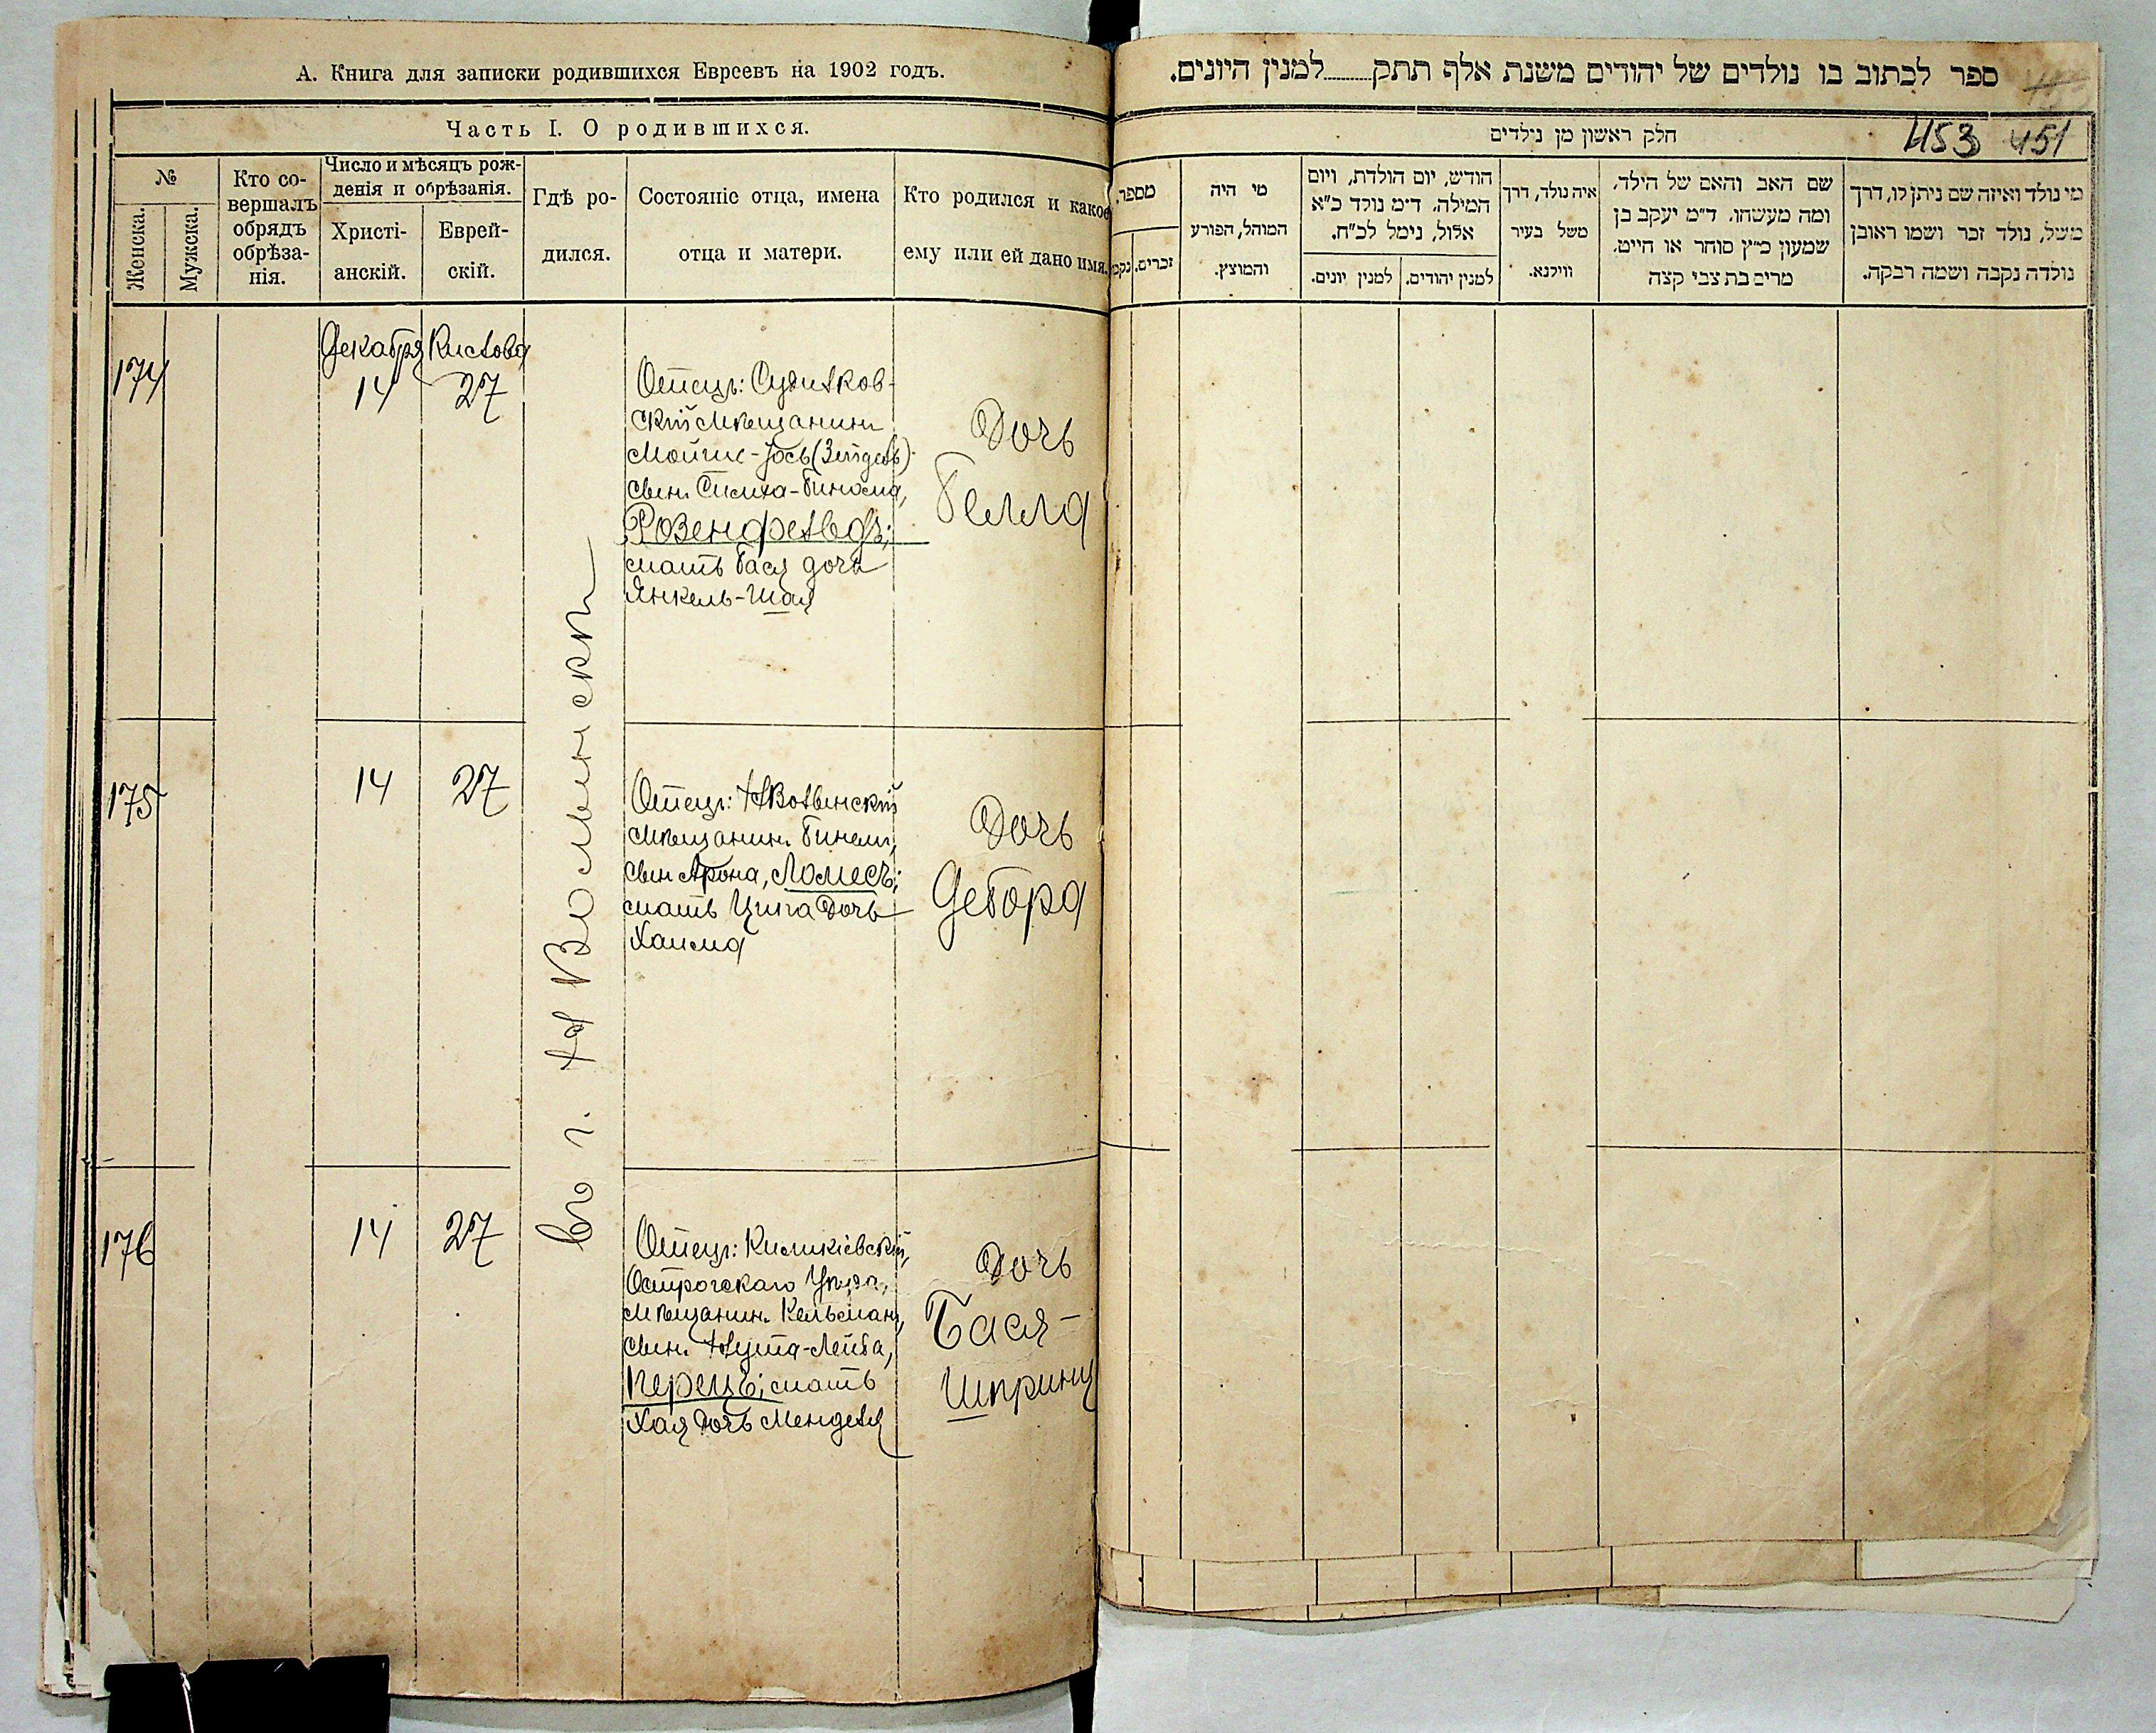 А. Книга для записки родившихся Евреевъ на 1902 годъ.
Часть I. О родившихся.
№
Женска.
Мужска.
Кто со-
вершалъ
обрядъ
обрѣза-
нія.
Число и мѣсяцъ рож-
денія и обрѣзанія.
Христі-
анскій.
Еврей-
скій.
Гдѣ ро-
дился.
Состояніе отца, имена
отца и матери.
Кто родился и какое
ему или ей дано имя.
174
Декабря Кислова
14 27
Отецъ: Судилков-
скій Мѣщанинъ
Мойше-Іось (Зейдель)
сынъ Симха-Бинома,
Розенфельдъ;
мать Бася дочь
Янкель-Шая
Дочь
Бемма
175
14 27
Отецъ: НВолынскій
Мѣщанинъ
сынъ Арона, Ломесъ;
мать Ципа Дочь
Хаима
Дочь
Дебора
176
14 27
Отецъ: Киликіевскій,
Острогскаго Уѣзда,
Мѣщанинъ Кельманъ,
сынъ Нута-Лейба,
Перецъ; мать
Хая Дочь Менделя
Дочь
Бася-
Шпринц
въ г. НВолынскѣ
ספר לכתוב בו נולדים של יהודים משנת אלף תתק למנין היונים.
453 451
חלק ראשון מן נולדים
מספר.
זכרים.
מי היה
המוהל, הפורע
והמוצץ.
חודש, יום הולדת, ויום
המילה. ד״מ נולד כ״א
אלול, נימל לכ״ח.
למנין יונים.
למנין יהודים.
איה נולד, דרך
משל בעיר
ווילנא.
שם האב והאם של הילד,
ומה מעשהו. ד״מ יעקב בן
שמעון כ״ץ סוחר או חייט.
מרים בת צבי קצה
מי נולד ואיזה שם ניתן לו, דרך
משל, נולד זכר ושמו ראובן
נולדה נקבה ושמה רבקה.